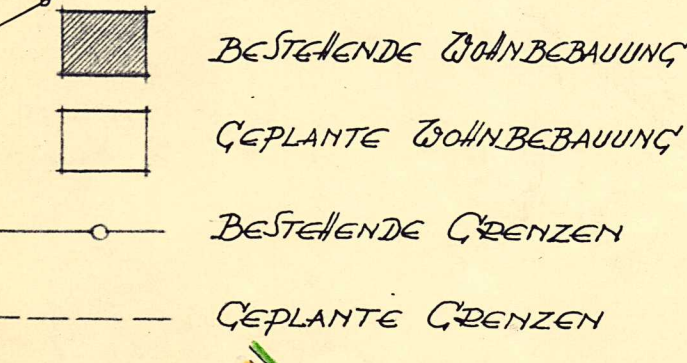 BESTEHENDE WOHNBEBAUUNG
GEPLANTE WOHNBEBAUUNG
BESTEHENDE GRENZEN
GEPLANTE GRENZEN